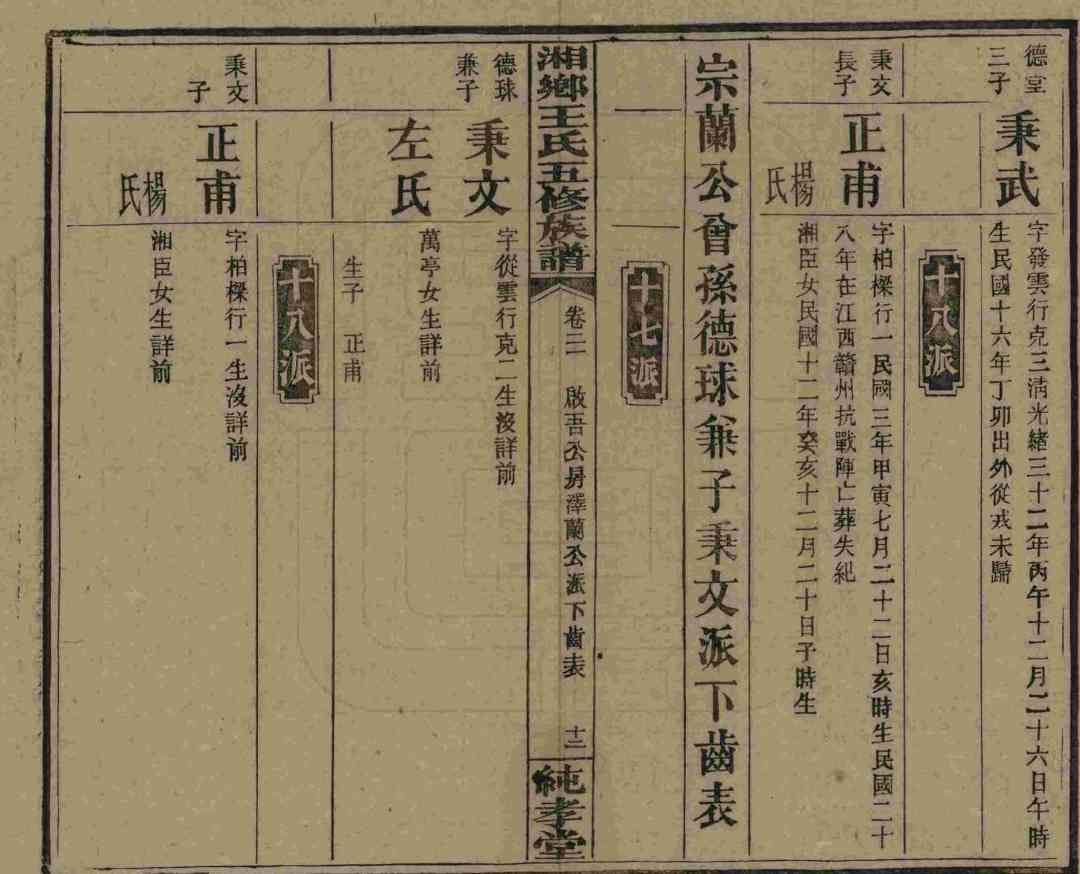 德堂
三子
秉武
字發雲行克三清光緒三十二年丙午十二月二十六日午時
生民國十六年丁卯出外從戎未歸
十八派
秉文
長子
正甫
字柏樑行一民國三年甲寅七月二十二日亥時生民國二十
八年在江西贛州抗戰陣亡葬失紀
楊氏
湘臣女民國十二年癸亥十二月二十日子時生
宗蘭公曾孫德球兼子秉文派下齒表
十七派
湘鄉王氏五修族譜
卷二 啟吾公房澤蘭公派下齒表 十二
純孝堂
德球
兼子
秉文
字從雲行克二生沒詳前
左氏
萬亭女生詳前
生子 正甫
十八派
秉文
子
正甫
字柏樑行一生沒詳前
楊氏
湘臣女生詳前